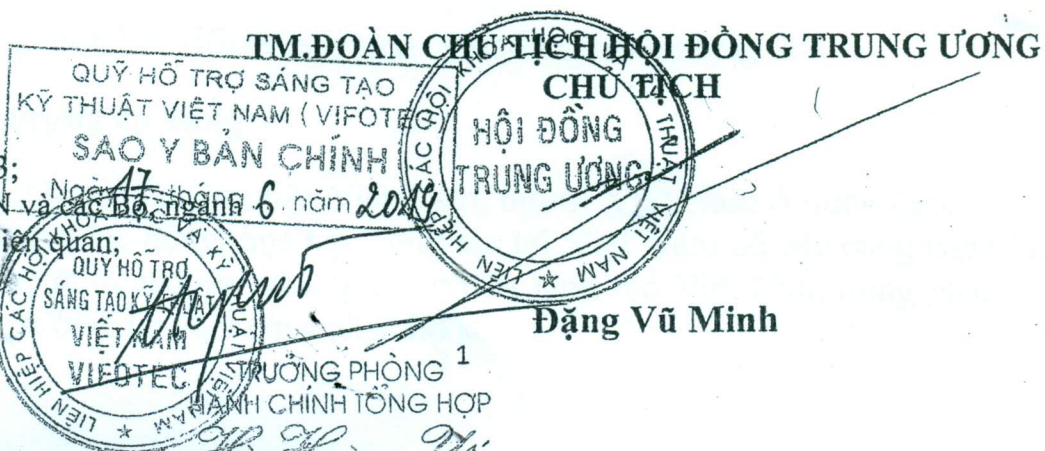 TM.ĐOÀN CHỦ TỊCH HỘI ĐỒNG TRUNG ƯƠNG
CHỦ TỊCH
QUỸ HỖ TRỢ SÁNG TẠO
KỸ THUẬT VIỆT NAM ( VIFOTEC )
SAO Y BẢN CHÍNH
Ngày 17 tháng 6 năm 2019
và các Bộ, ngành
iên quan;
LIÊN HIỆP CÁC HỘI KHOA HỌC VÀ KỸ THUẬT VIỆT NAM
HỘI ĐỒNG
TRUNG ƯƠNG
LIÊN HIỆP CÁC HỘI KHOA HỌC VÀ KỸ THUẬT VIỆT NAM
QUỸ HỖ TRỢ
SÁNG TẠO KỸ THUẬT
VIỆT NAM
VIFOTEC
Đặng Vũ Minh
1
TRƯỞNG PHÒNG
HÀNH CHÍNH TỔNG HỢP